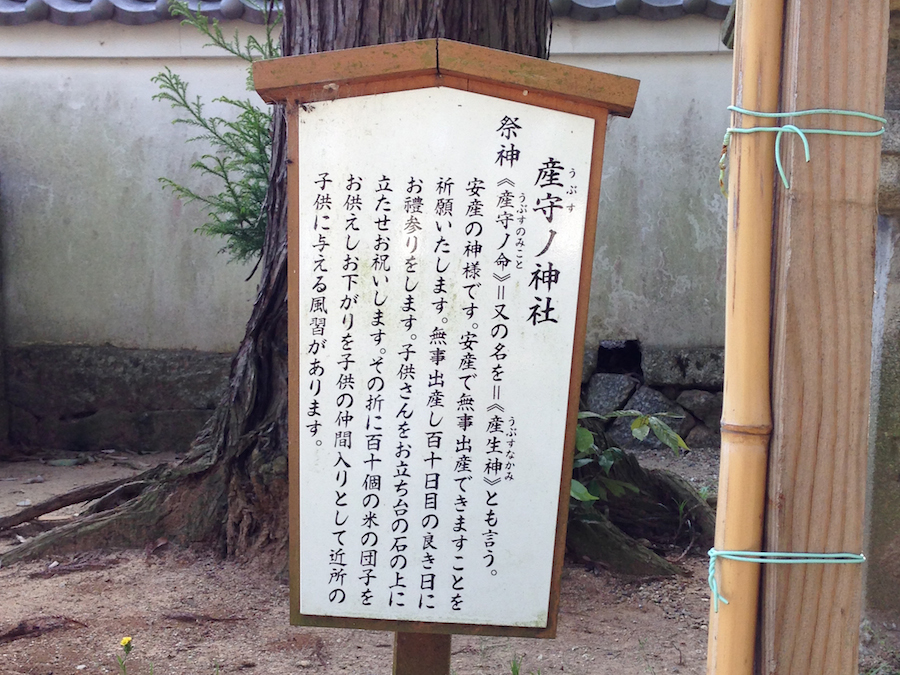 産守ノ神社
うぶす
祭神《産守ノ命》＝又の名を＝《産生神》とも言う。
うぶすのみこと
うぶすなかみ
安産の神様です。安産で無事出産できますことを
祈願いたします。無事出産し百十日目の良き日に
お禮参りをします。子供さんをお立ち台の石の上に
立たせお祝いします。その折に百十個の米の団子を
お供えしお下がりを子供の仲間入りとして近所の
子供に与える風習があります。